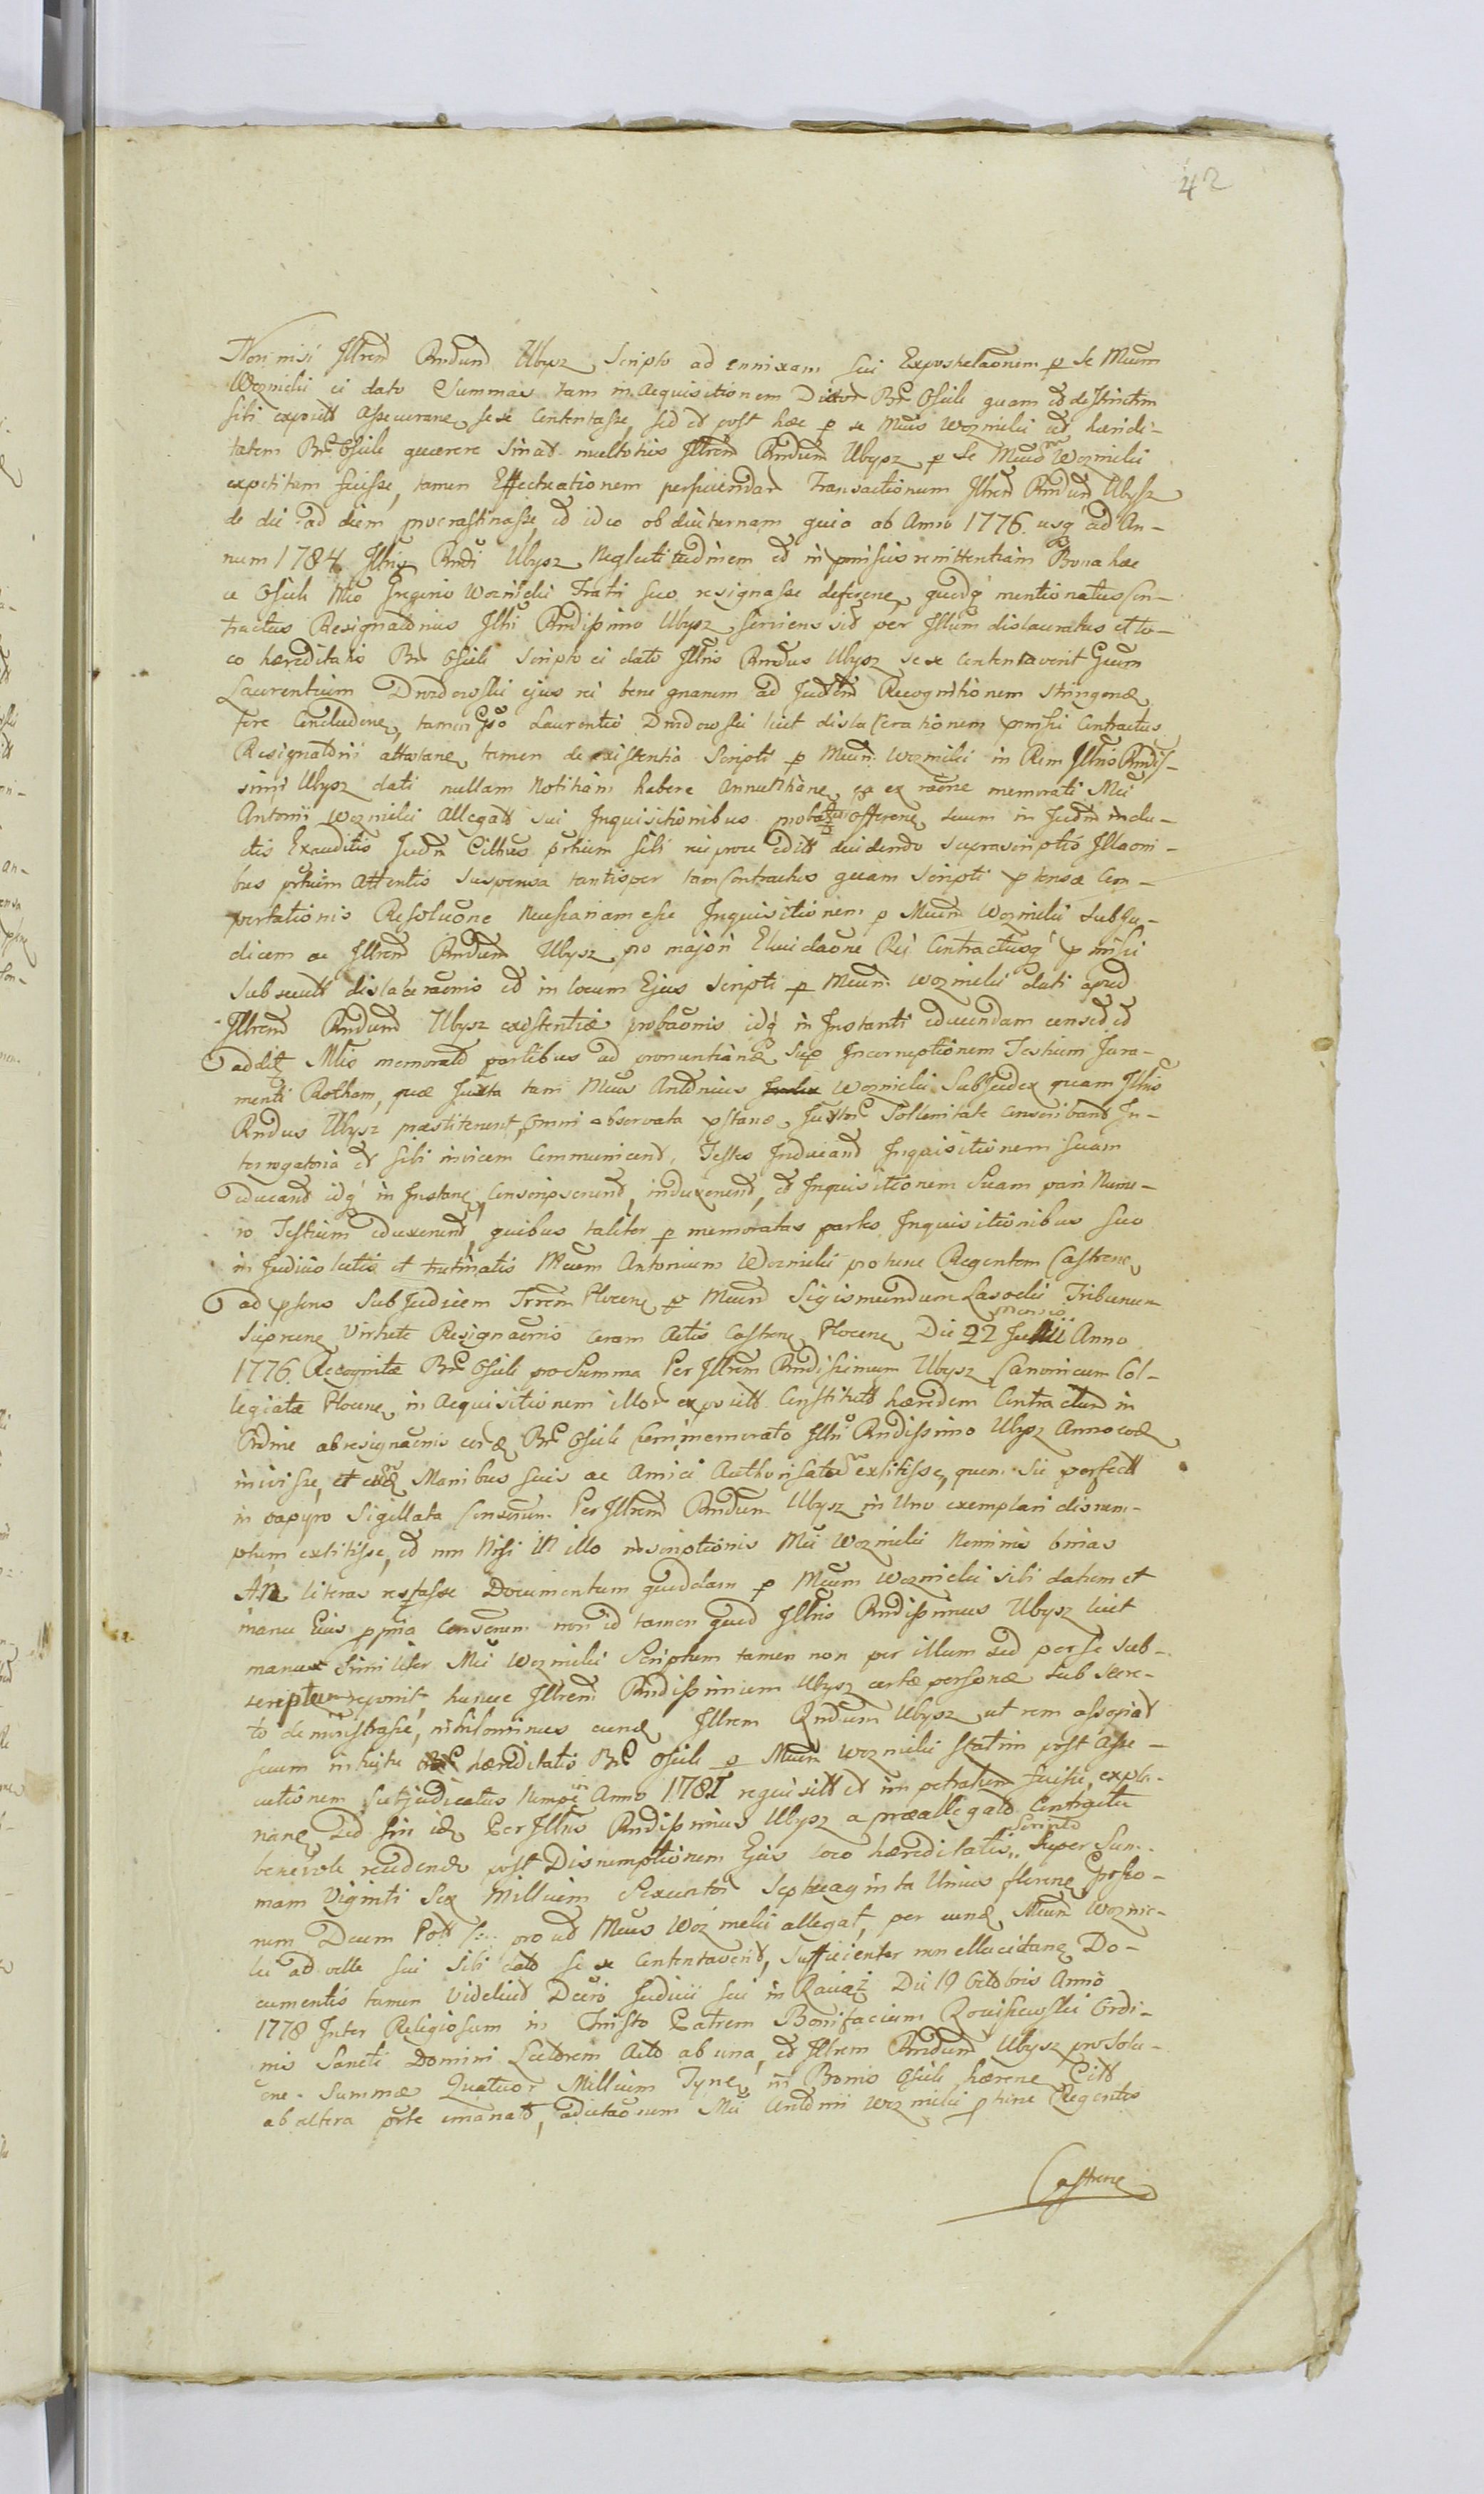 42
Non nisi Illrem Rndum Ubysz Scripto ad ennixam sui Expostulaonem p Se Mcum
Woznicki ei dato Summas tam in Aequisitionem Dictor Br Osiek quam et destrictim
sibi exposit Asseverane sese Contentasse, sed et post haec p se Mcus Woznicki ad heredi-
tatem Br Osiek quaerere Sinat multoties Illrem Rndum Ubysz p se Mcum Woznicki
expetitum fuisse, tamen Effectuationem perficiendar Transactionum Illrem Rndum Ubysz
de die ad diem procrastinasse et ideo ob diuturnam quia ab Anno 1776 usq ad An-
num 1784 Illris Rndi Ubysz Neglectitudinem et in pmissis remittentiam Bona haec
ce Osiek Mco Gregorio Woznicki Fratri suo resignasse deferene, quodq mentionatus Con-
tractus Resignatorius Illri Rndissimo Ubysz serviens sit per Illum dislaceratus et lo-
co haereditatis Br Osiek Scripto ei dato Illris Rndus Ubysz sese contentaverit Gsum
Laurentium Drozdowski ejus rei bene gnarum ad Judm Recognitionem stringend
fore Concludene, tamen Gso Laurentio Drozdowski licet dislacerationem pmissi Contractus
Resignatorii attestane, tamen de existentia Scripti p Mcum Woznicki in Rem Illris Rndis-
simi Ubysz dati nullam Notitiam habere Annuntiane, ea ex raone memorati Mci
Antonii Woznicki Allegatt sui Inquisitionibus probatur offerene, suum in Judm indu-
ctis Exauditis Judm Citthus prtium sibi reciproce editt decidendo suprascriptis Illaoni-
bus prtium Attentis suspensa tantisper tam Contractus quam Scripti ptensae Com-
portationis Resoluone Necessariam esse Inquisitionem p Mcum Woznicki SubJu-
dicem ac Illrem Rndum Ubysz pro majori Elucidaone Rei Contractusq pmissi
Subsecutt dislaceraonis et in locum Ejus Scripti p Mcum Woznicki dati apud
Illrem Rndum Ubysz existentiae probaonis idq in Instanti educendam censet et
addit Mtio memorat partibus ad pronuntiand Sup Incorruptionem Testium Jura-
menti Rotham, quae Juxta tam Mcus Antonius Woznicki SubJudex quam Illris
Rndus Ubysz praestiterunt, Omni observata pstand Jurtor Sollenitate Conscribant In-
terrogatoria et sibi invicem Communicent, Testes Inducant Inquisitionem suam
educant idq in Instane, Conscripserunt, induxerunt, et Inquisitionem Suam pari Nume-
ro Testium eduxerunt, quibus taliter p memoratas partes Inquisitionibus suo
in Judicio lectis et trutinatis Mcum Antonium Woznicki pro tunc Regentem Castrene,
ad psens SubJudicem Trrem Plocene p Mcum Sigismundum Lasocki Tribunum
Sieprcene Virtute Resignaonis coram Actis Castrene Plocene Die 22 mensis Julii Anno
1776 Recognitae Br Osiek pro Summa Per Illrem Rndissimum Ubysz Canonicum Col-
legiatae Plocene, in Aequisitionem illor exposit Constitutt haeredem Contractum in
Ordine abresignaonis eord Br Osiek Commemorato Illri Rndissimo Ubysz Anno eod
inivisse, et eund Manibus suis ac Amici Authorisatum extitisse, quem sic perfectt
in papyro Sigillata Conscrm Per Illrem Rndum Ubysz in Uno exemplari disrum-
ptum extitisse, et non Nisi in illo inscriptionis Mci Woznicki Nominis binas
An literas restasse Documentum quoddam p Mcum Woznicki sibi datum et
manu Ejus ppria Conscrm non id tamen quod Illris Rndissimus Ubysz licet
manu similiter Mci Woznicki Scriptum tamen non per illum sed per se sub-
scriptum reponit, hunce Illrem Rndissimum Ubysz certae personae sub Secre-
to demonstrasse, nihilominus eund Illrem Rndum Ubysz ut rem assopiat
suum intuitu haereditatis Br Osiek p Mcum Woznicki statim post Asse-
cutionem Subjudicatus Nempe in Anno 1781 requisitt et impetratum fuisse, expla-
nane, sed sin id Per Illris Rndissimus Ubysz a praeallegato Contractu
benevole recedendo post Disrumptionem Ejus loco haereditatis Scripto Super Sum-
mam Viginti Sex Millium Sexcentor Septuaginta Unius florene Polo-
num Dcum Pott prout Mcus Woznicki allegat, per eund Mcum Woznic-
ki ad velle sui sibi dato sese Contentaverit, Sufficienter non ellucidane Do-
cumentis tamen Videlicet Decro Judicii sui in Raciąż Die 19 Octobris Anno
1778 Inter Religiosum in Christo Patrem Bonifacium Rocisewski Ordi-
nis Sancti Domini Lectorem Acto ab una, et Illrem Rndum Ubysz pro Solu-
one Summae Quatuor Millium Tyne, in Bonis Osiek haerene Citt
ab altera prte emanat, adcitaonem Mci Antonii Woznicki ptunc Regentis
Castrene